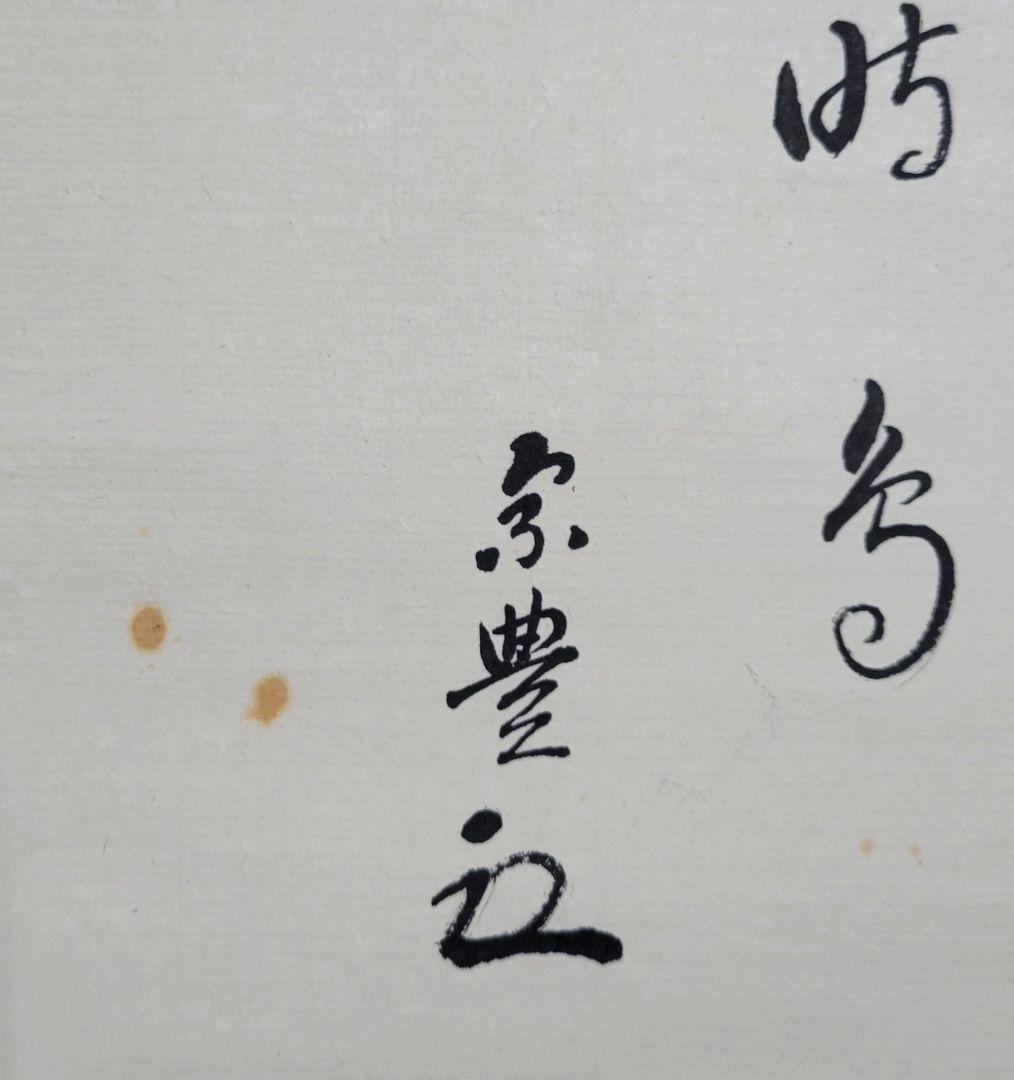 時鳥
宗豊